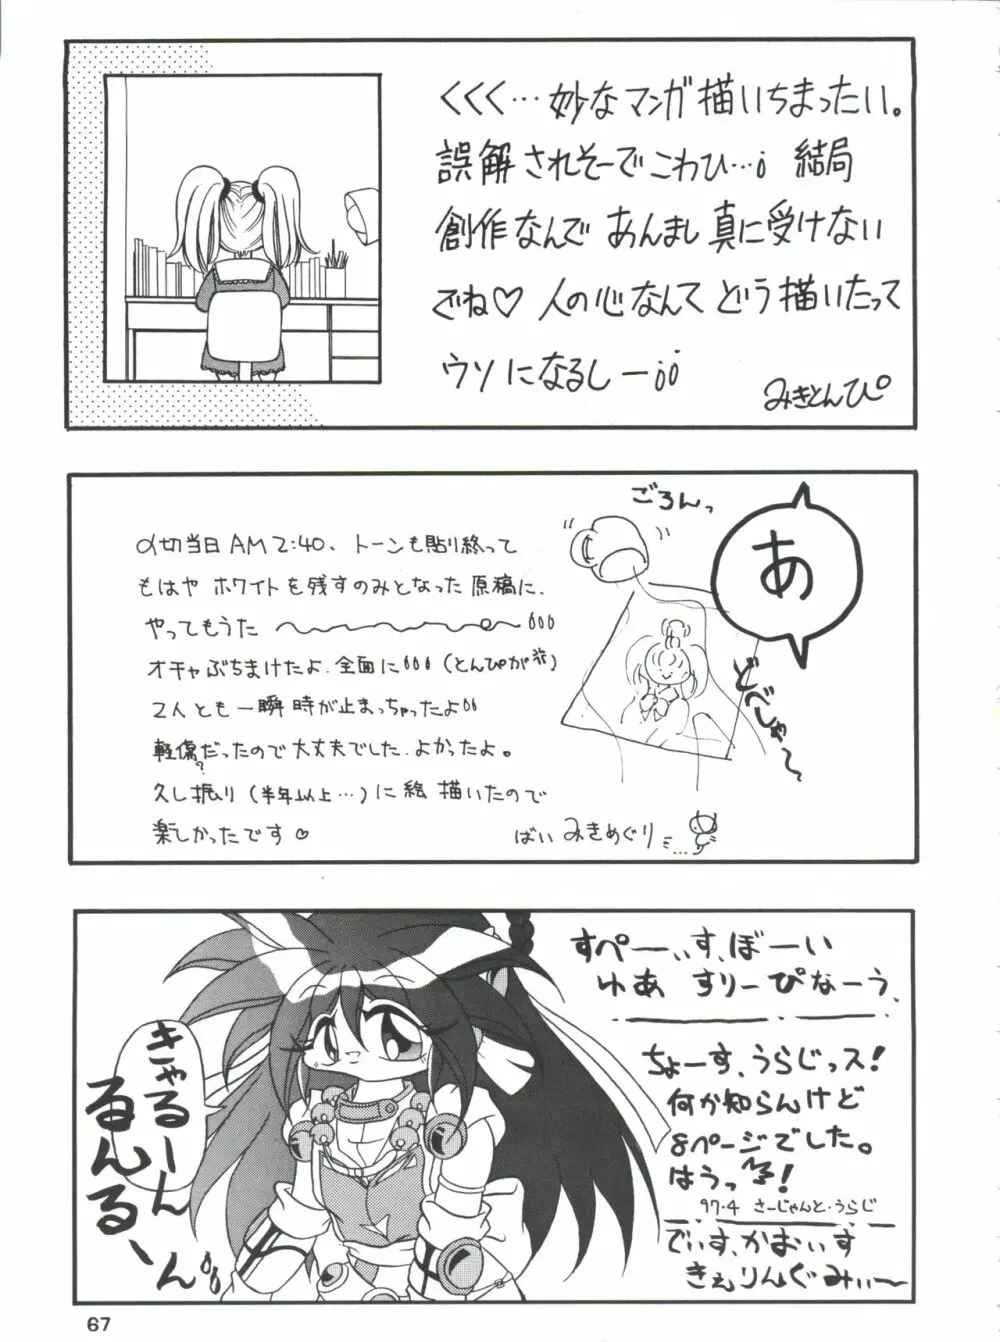 くくく…妙なマンガ描いちまったい。
誤解されそーでこわひ…¡ 結局
創作なんで あんまし真に受けない
でね♡ 人の心なんて どう描いたって
ウソになるしー¡¡
みきとんぴ
ごろんっ
あ
どべしゃ〜
〆切当日AM2:40、トーンも貼り終って
もはや ホワイトを残すのみとなった 原稿に、
やってもうた
オチャぶちまけたよ.全面に(とんぴが)
2人とも一瞬 時が止まっちゃったよ
軽傷だったので大丈夫でした.よかったよ。
?
久し振り(半年以上…)に絵 描いたので
楽しかったです♡
ばい みきめぐり
すぺーす、ぼーい
ゆあ すりーぴなーう、
きゃるーん
るんるん
ちょーす、うらじっス!
何か知らんけど
8ページでした。
はうっ!
97・4 さーじゃんと・うらじ
でぃす、かおいす
きぇりんぐみぃ〜
67